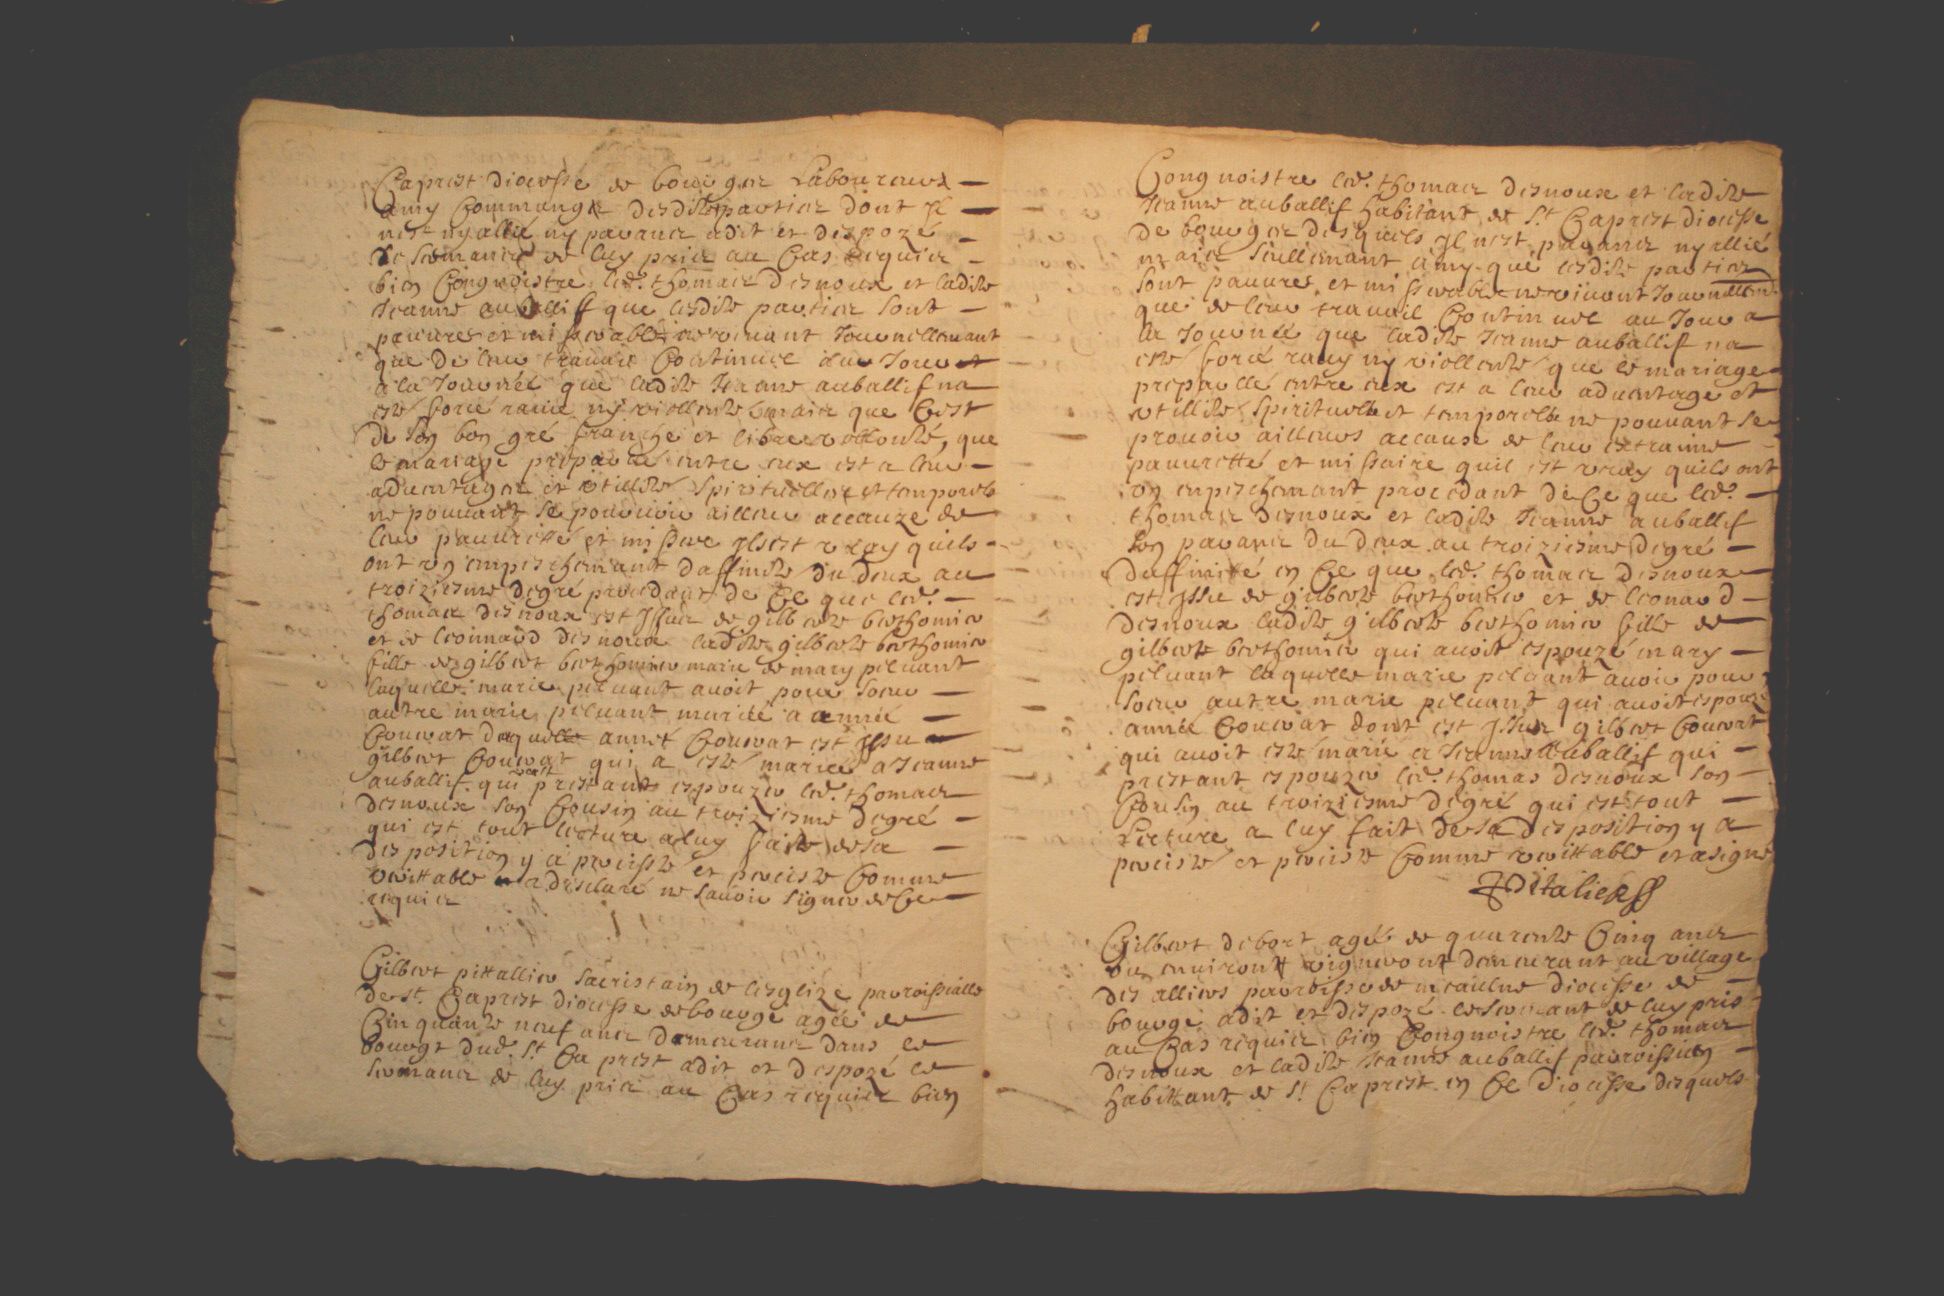 Caprest diocesse de bourges Laboureux
amy Commung desdite partier dont Il
nest ny allié ny paranes adit et depozé
le sermanes de luy pries au Cas requier
bien Congnoistre led. thomas desnoux et ladite
Jeanne auballiff que lesdite partier sont
pauures et missarable ne viuant Journellemant
que de leur trauail Continuel du Jour et
a la Journée que ladite Jeanne auballif na
este forcé rauie ny viellente mais que Cest
de son bon gré franche et libre vollonté, que
le mariage propaulé entre eux est a leur
aduantages et vtillite spirituelles et temporele
ne pouuant se pouruoir ailleur accauze de
leur pauuretté et missere Ils est vray quils
ont vn empeschemant daffinite du deux au
troiziesme degré procedant de Ce que led.
thomas desnoux est Issus de gilberte berthomier
et de lionnard desnoux ladite gilberte berthomier
fille de gilbert berthomier marié de mary peluant
laquelle marie peluant auoit pour soeur
autre marie peluant mariée a année
Couuat daquelle année Couuat est Issu
gilbert Couuat qui a este mariée a Jeanne
auballif qui veut prestant espouzer led. thomas
desnoux son Cousin au troiziesme degré
qui est tout lecture aluy faite de sa
desposition y a preciste et preciste Comme
verittable a desclaré ne sauoir signer de Ce
requier
Gilbert pittallier sacristain de lesglize parroissialle
de St. Caprest diocesse de bourge agée de
Cinquante neuf ans demeurans dans le
bourgt dud. St Caprest adit et depozé le
sermanes de luy pries au Cas requier bien
Congnoistre led. thomas desnoux et ladite
Jeanne auballif habitant de St Caprest diocisse
de bourges desquels Il nest paranes ny allié
mais seullemant amy que lesdite partier
sont pauures et missarable ne viuont Journellemt
que de leur trauail Continuel au Jour a
la Journée que ladite Jeanne auballif na
este forcé rauy ny viellente que le mariage
propaullé entre eux est a leur aduantage et
vtillite spirituelle et temporelle ne pouuant se
prouoir ailleurs accause de leur extraime
pauurette et missaire quil est vray quils ont
vn enpeschemant procedant de Ce que led.
thomas desnoux et ladite Jeanne auballif
son paranes du deux au troiziesme degré
daffinitté en Ce que led. thomas desnoux
est Issu de gilberte berthomier et de leonard
desnoux ladite gilberte berthomier fille de
gilberte berthomier qui auoit espouzé mary
peluant laquelle marie peluant auoir pour
soeur autre marie peluant qui auoit espouzé
année Couuat dont est Issus gilbert Couuat
qui auoit este marié a Jeanne auballif qui
prestant espouzer led. thomas desnoux son
Cousin au troiziesme degré qui est tout
Lecture a luy fait de sa desposition y a
preciste et preciste Comme verittable et a signé
Pitalier
Gilbert debort agée de quarente Cinq ans
ou enuiront vigneront demeurant au village
des alliers parroisse de meaulne diocisse de
bourge adit et depozé le sermant de luy pris
au Cas requier bien Congnoistre led. thomas
desnoux et ladite Jeanne auballif parroissien
habittant de St Caprest en Ce diocisse desquels